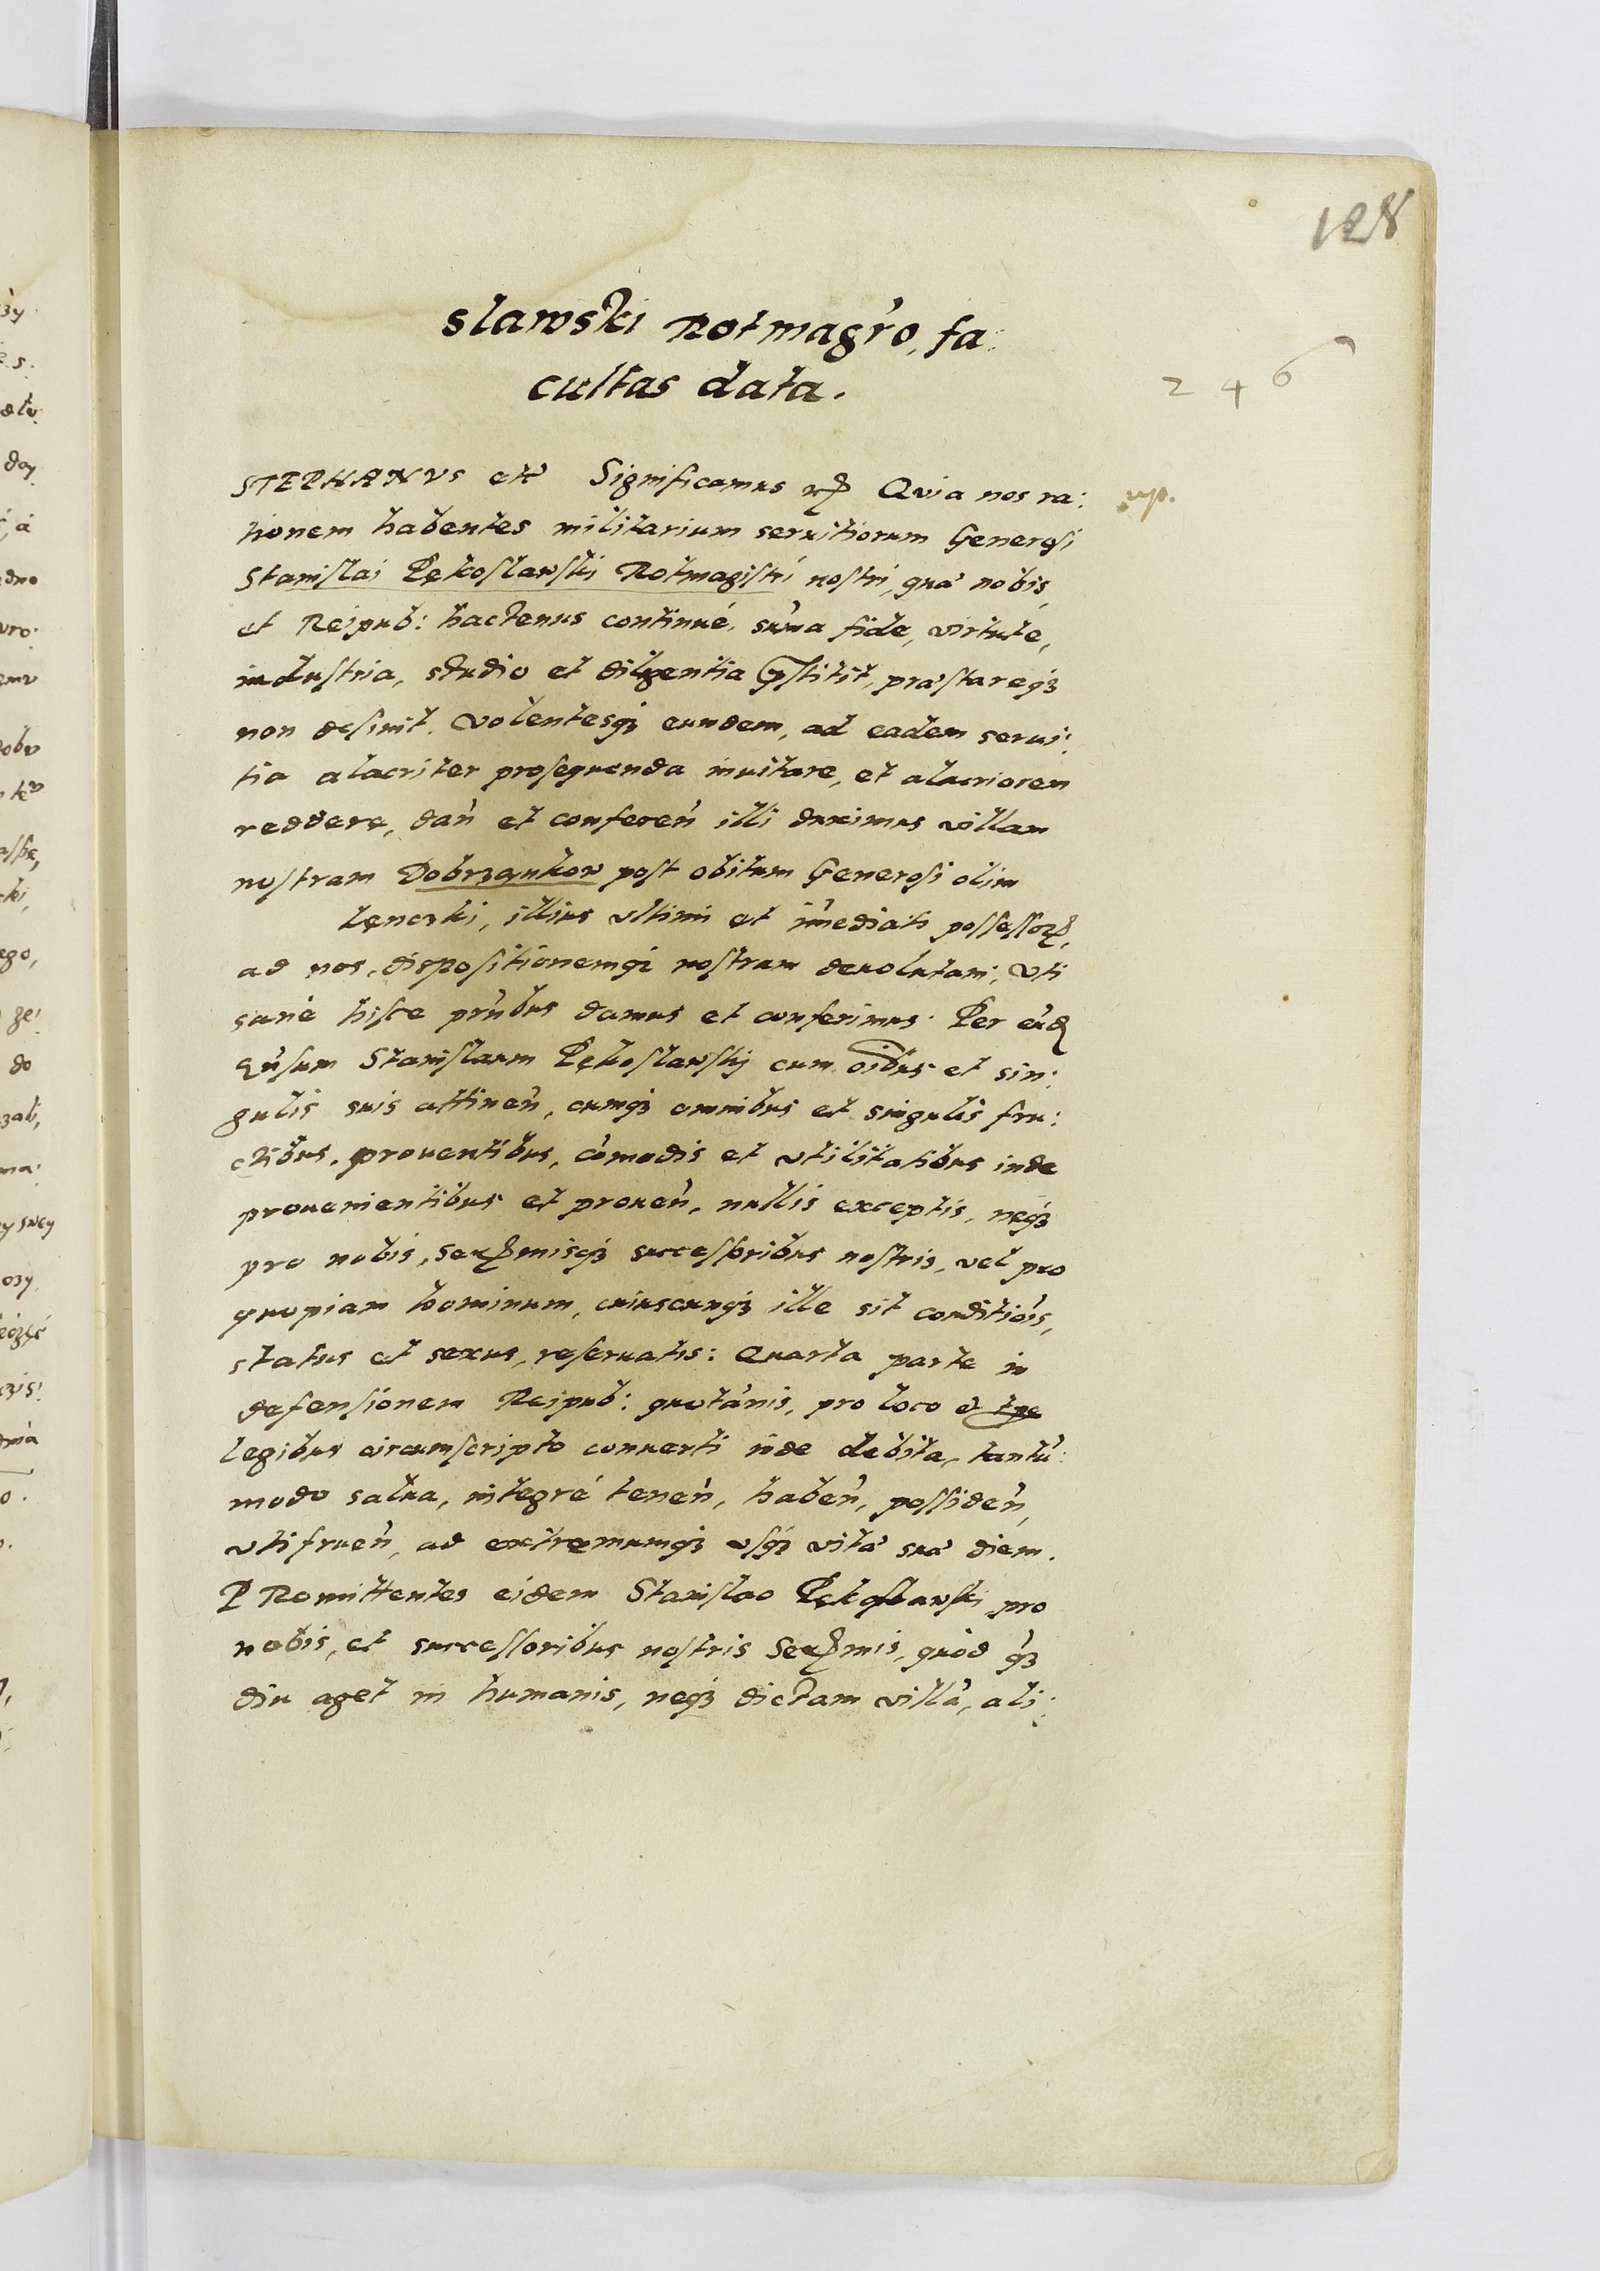 128
slawski Rotmagr̃o, fa:
cultas data.
246
STEPHANVS etc̃ Significamus Quia nos ra:
tionem habentes militarium seruitiorum Generosi
Stanislai Pękoslawski Rotmagistri nostri, quæ nobis,
et Reipub: hactenus continué, sum̃a fide, virtute,
industria, studio et diligentia pręstitit, præstareqꝫ
non desinit. Volentesqꝫ eundem, ad eadem serui:
tia alacriter prosequenda inuitare, et alacriorem
reddere, dan̄ et conferen̄ illi duximus villam
nostram Dobrzankow post obitum Generosi olim
Lęnczki, illius vltimi et im̃ediati possessoꝝ,
ad nos, dispositionemqꝫ nostram deuolutam, vti
sané hisce pr̄ntibus damus et conferimus. Per
Stanislaum Pękoslawskj cum oĩbus et sin:
gulis suis attinen̄, cumqꝫ omnibus et singulis fru:
ctibus, prouentibus, com̃odis et vtilitatibus inde
prouenientibus et prouen̄, nullis exceptis, neqꝫ
pro nobis, seren̄misqꝫ successoribus nostris, vel pro
quopiam hominum, cuiuscunqꝫ ille sit conditiõis,
status et sexus, reseruatis: Quarta parte in
defensionem Reipub: quotan̄is, pro loco et
legibus circumscripto conuerti inde debita, tantũ:
modo salua, integré tenen̄, haben̄, possiden̄,
vtifruen̄, ad extremumqꝫ vsqꝫ vitæ suæ diem.
PRomittentes eidem Stanislao Pękoslawski pro
nobis, et successoribus nostris Seren̄mis, quòd qꝫ
diu aget in humanis, neqꝫ dictam villã, ali: